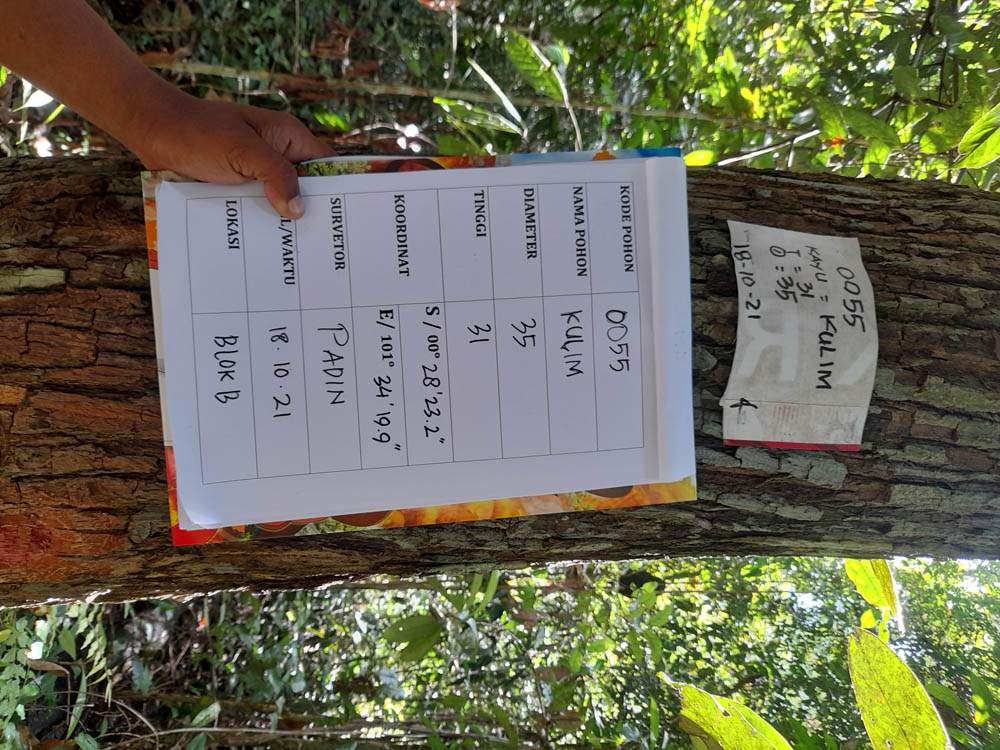 0055
KAYU = KULIM
T = 31
Ꝋ = 35
18-10-21
KODE POHON 0055
NAMA POHON KULIM
DIAMETER 35
TINGGI 31
KOORDINAT
S / 00° 28'23.2"
E/ 101° 34'19.9"
SURVETOR PADIN
L/WAKTU 18.10.21
LOKASI BLOK B